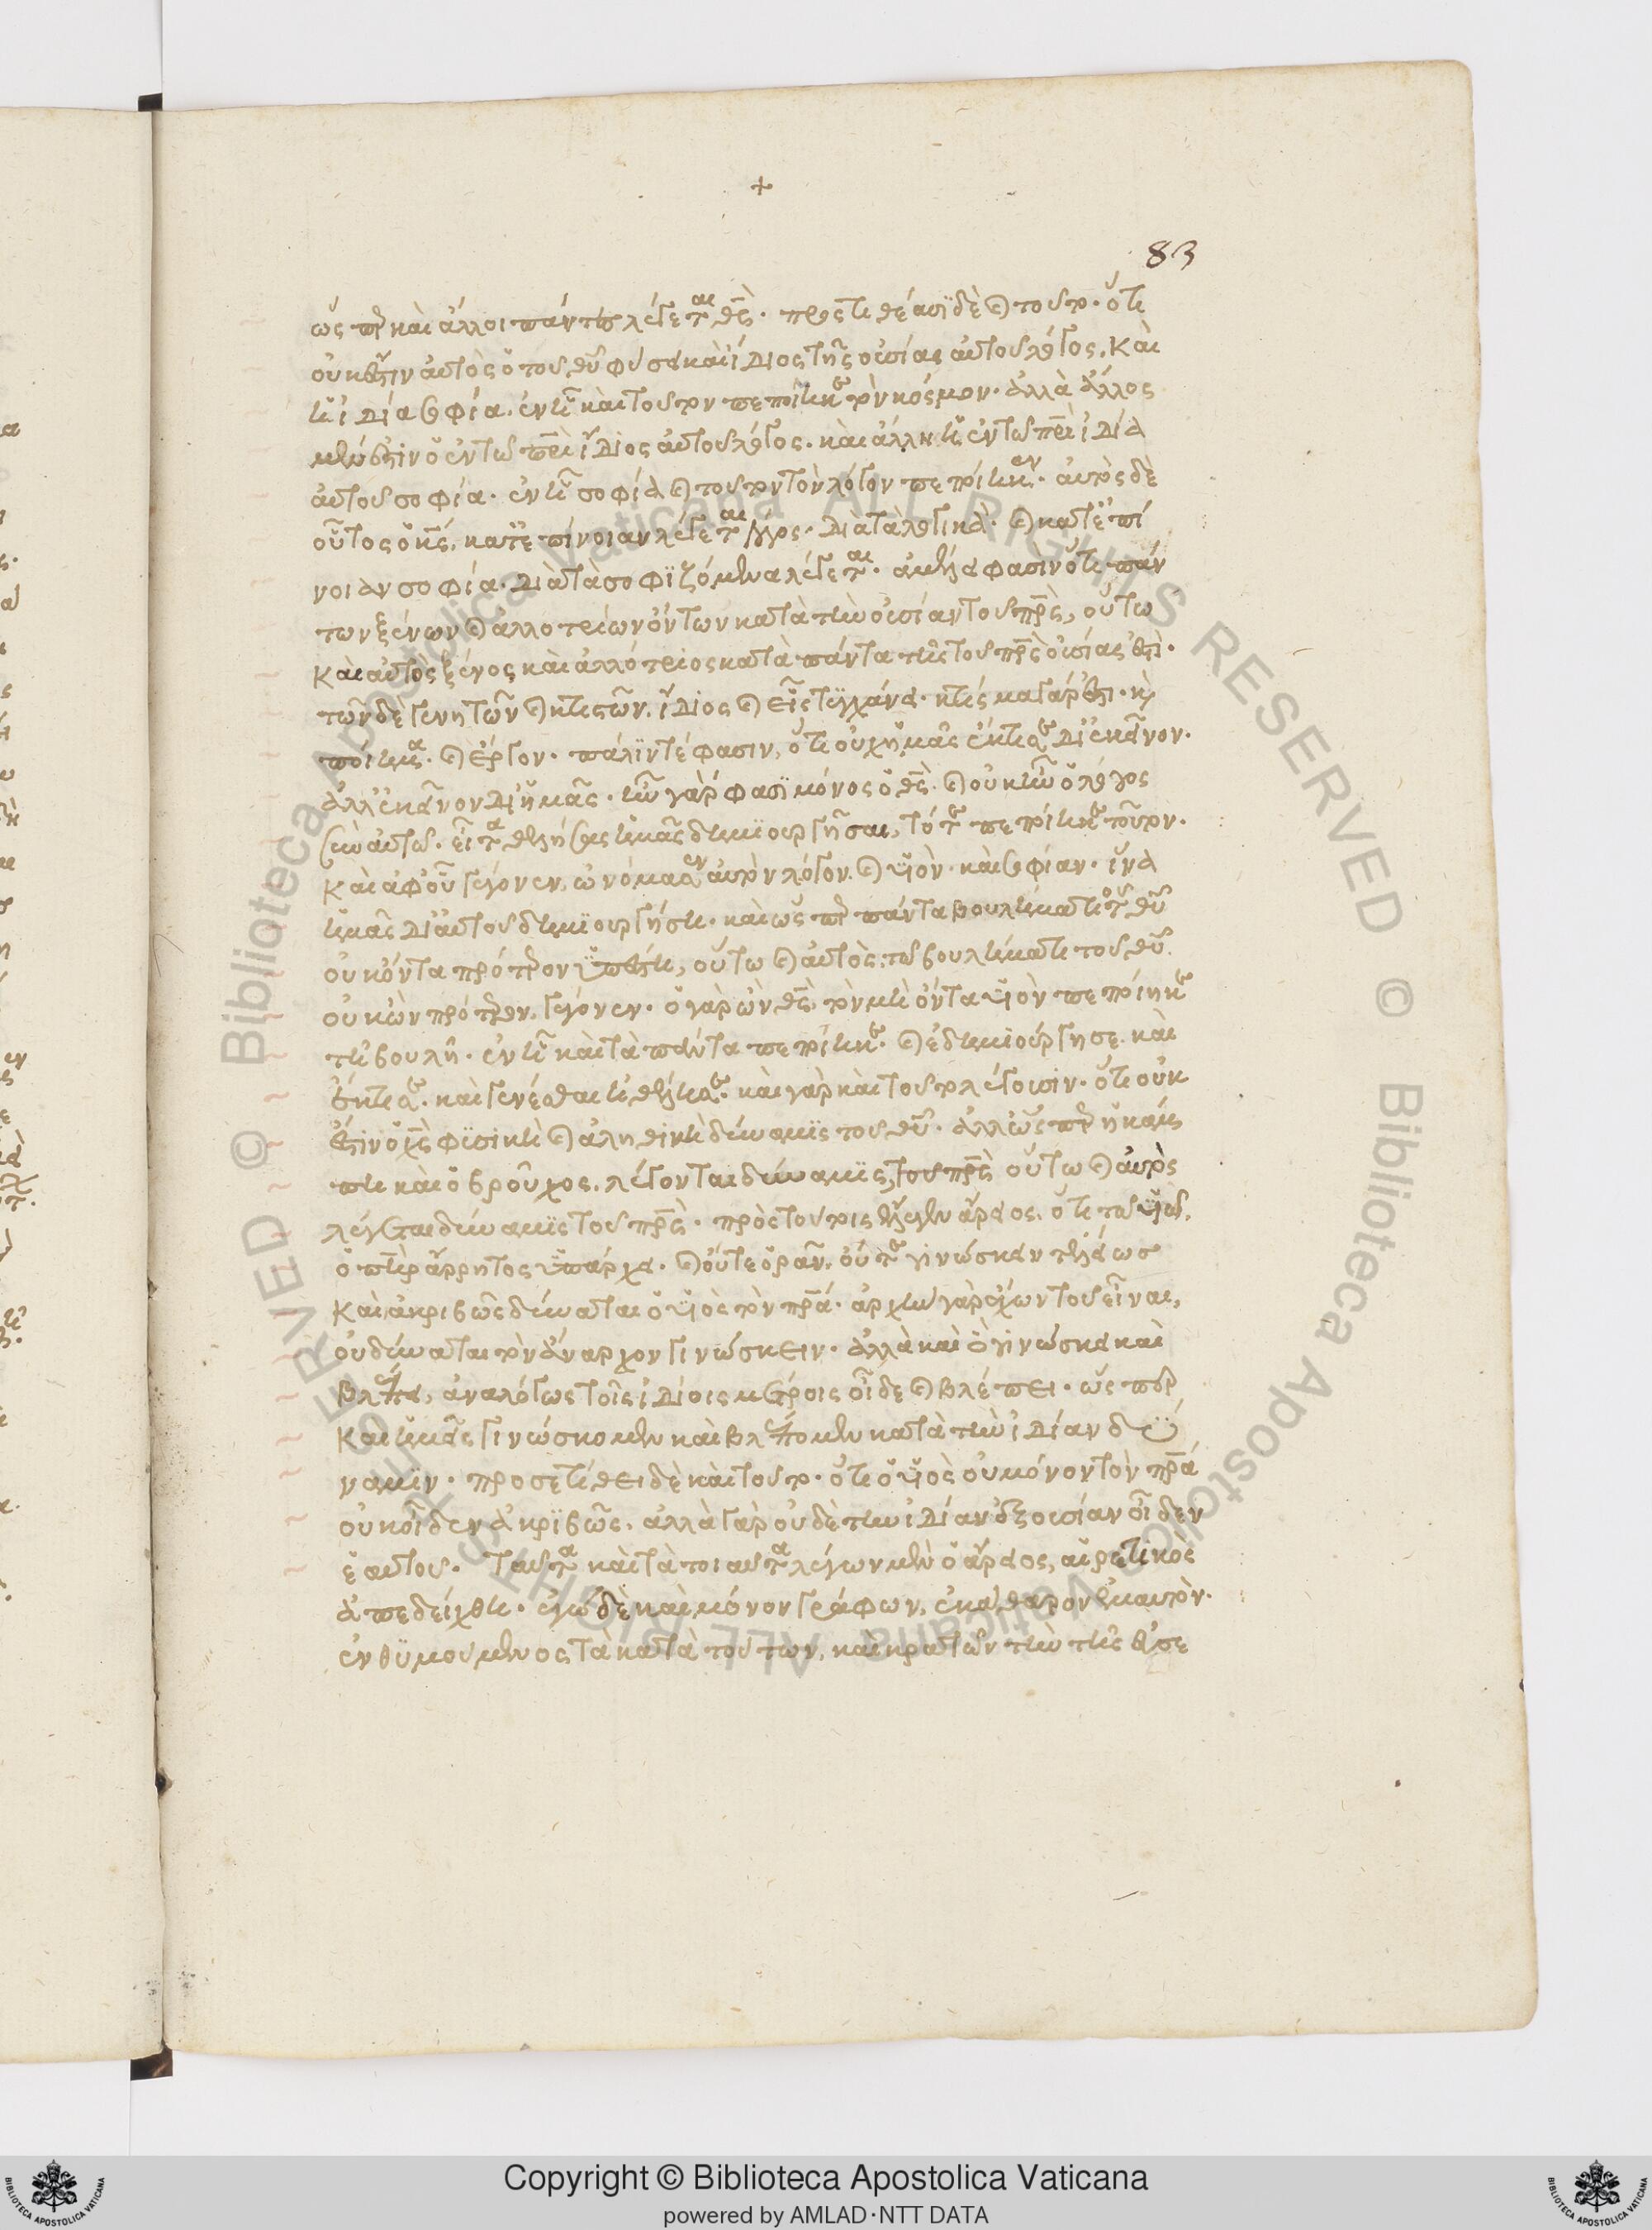 +
83
ὥς περ καὶ ἄλλοι πάντες λέγεται θς̅. προστιθέασι δὲ καὶ τοῦτο. ὅτι
οὐκ ἔστιν αὐτὸς ὁ τοῦ θυ̅ φύσει καὶ ἴδιος τῆς οὐσίας αὐτοῦ λόγος. καὶ
ἡ ἰδία σοφία. ἐν ᾗ καὶ τοῦτον πεποίηκε τὸν κόσμον. ἀλλὰ ἄλλος
μέν ἐστιν ὁ ἐν τῶ πρι̅ ἴδιος αὐτοῦ λόγος. καὶ ἄλλη ἡ ἐν τῶ πρι̅ ἰδία
αὐτοῦ σοφία. ἐν ᾗ σοφία καὶ τοῦτον τὸν λόγον πεποίηκεν. αὐτὸς δὲ
οὗτος ὁ κς̅, κατ' ἐπίνοιαν λέγεται λόγος. διὰ τὰ λογικά. καὶ κατ' ἐπί
νοιαν σοφία. διὰ τὰ σοφιζόμενα λέγεται. ἀμέλει φασὶν ὅτι πάν
των ξένων καὶ ἀλλοτρίων ὄντων κατὰ τὴν οὐσίαν τοῦ πρς̅, οὕτω
καὶ αὐτὸς ξένος καὶ ἀλλότριος κατὰ πάντα τῆς τοῦ πρς̅ οὐσίας ἐστὶ.
τῶν δὲ γενητῶν καὶ κτιστῶν. ἴδιος καὶ εἷς τυγχάνει. κτίσμα γάρ ἐστι. καὶ
ποίημα. καὶ ἔργον. πάλιν τέ φασιν, ὅτι οὐχ ἡμᾶς ἔκτισε δι' ἐκεῖνον.
ἀλλ' ἐκεῖνον δι' ἡμᾶς. ἦν γάρ φασι μόνος ὁ θς̅. καὶ οὐκ ἦν ὁ λόγος
σὺν αὐτῶ. εἶτα θελήσας ἡμᾶς δημιουργῆσαι, τότε πεποίηκε τοῦτον.
καὶ ἀφ' οὗ γέγονεν, ὠνόμασεν αὐτὸν λόγον. καὶ υἱὸν. καὶ σοφίαν. ἵνα
ἡμᾶς δι' αὐτοῦ δημιουργήση. καὶ ὥς περ πάντα βουλήματι τοῦ θυ̅
οὐκ ὄντα πρότερον ὑπέστη, οὕτω καὶ αὐτὸς τῶ βουλήματι τοῦ θυ̅.
οὐκ ὢν πρότερον, γέγονεν. ὁ γὰρ ὢν θς̅, τὸν μὴ ὄντα υἱὸν πεποίηκε
τῆ βουλῆ. ἐν ᾗ καὶ τὰ πάντα πεποίηκε. καὶ ἐδημιούργησε. καὶ
ἔκτισε. καὶ γενέσθαι ἠθέλησε. καὶ γὰρ καὶ τοῦτο λέγουσιν. ὅτι οὐκ
ἔστιν ὁ χς̅ φυσικὴ καὶ ἀληθινὴ δύναμις τοῦ θυ̅. ἀλλ' ὥς περ ἡ κάμ
πη καὶ ὁ βροῦχος. λέγονται δύναμις, τοῦ πρς̅ οὕτω καὶ αὐτὸς
λέγεται δύναμις τοῦ πρς̅. πρὸς τούτοις ἔλεγεν ἄρειος. ὅτι τῶ υἱῶ,
ὁ πηρ̅ ἄρρητος ὑπάρχει. καὶ οὔτε ὁρᾶν, οὔτε γινώσκειν τελείως
καὶ ἀκριβῶς δύναται ὁ υἱὸς τὸν πρα̅. ἀρχὴν γὰρ ἔχων τοῦ εἶναι,
οὐ δύναται τὸν ἄναρχον γινώσκειν. ἀλλὰ καὶ ὃ γινώσκει καὶ
βλέπει, ἀναλόγως τοῖς ἰδίοις μέτροις οἶδε καὶ βλέπει. ὥς περ
καὶ ἡμεῖς γινώσκομεν καὶ βλέπομεν κατὰ τὴν ἰδίαν δύ
ναμιν. προσετίθει δὲ καὶ τοῦτο. ὅτι ὁ υἱὸς οὐ μόνον τὸν πρα̅
οὐκ οἶδεν ἀκριβῶς. ἀλλὰ γὰρ οὐδὲ τὴν ἰδίαν ἐξουσίαν οἶδεν
ἑαυτοῦ. Ταῦτα καὶ τὰ τοιαῦτα λέγων μὲν ὁ ἄρειος, αἱρετικὸς
ἀπεδείχθη. ἐγὼ δὲ καὶ μόνον γράφων, ἐκάθαρον ἐμαυτὸν.
ἐνθυμούμενος τὰ κατὰ τούτων, καὶ κρατῶν τὴν τῆς εὐσε